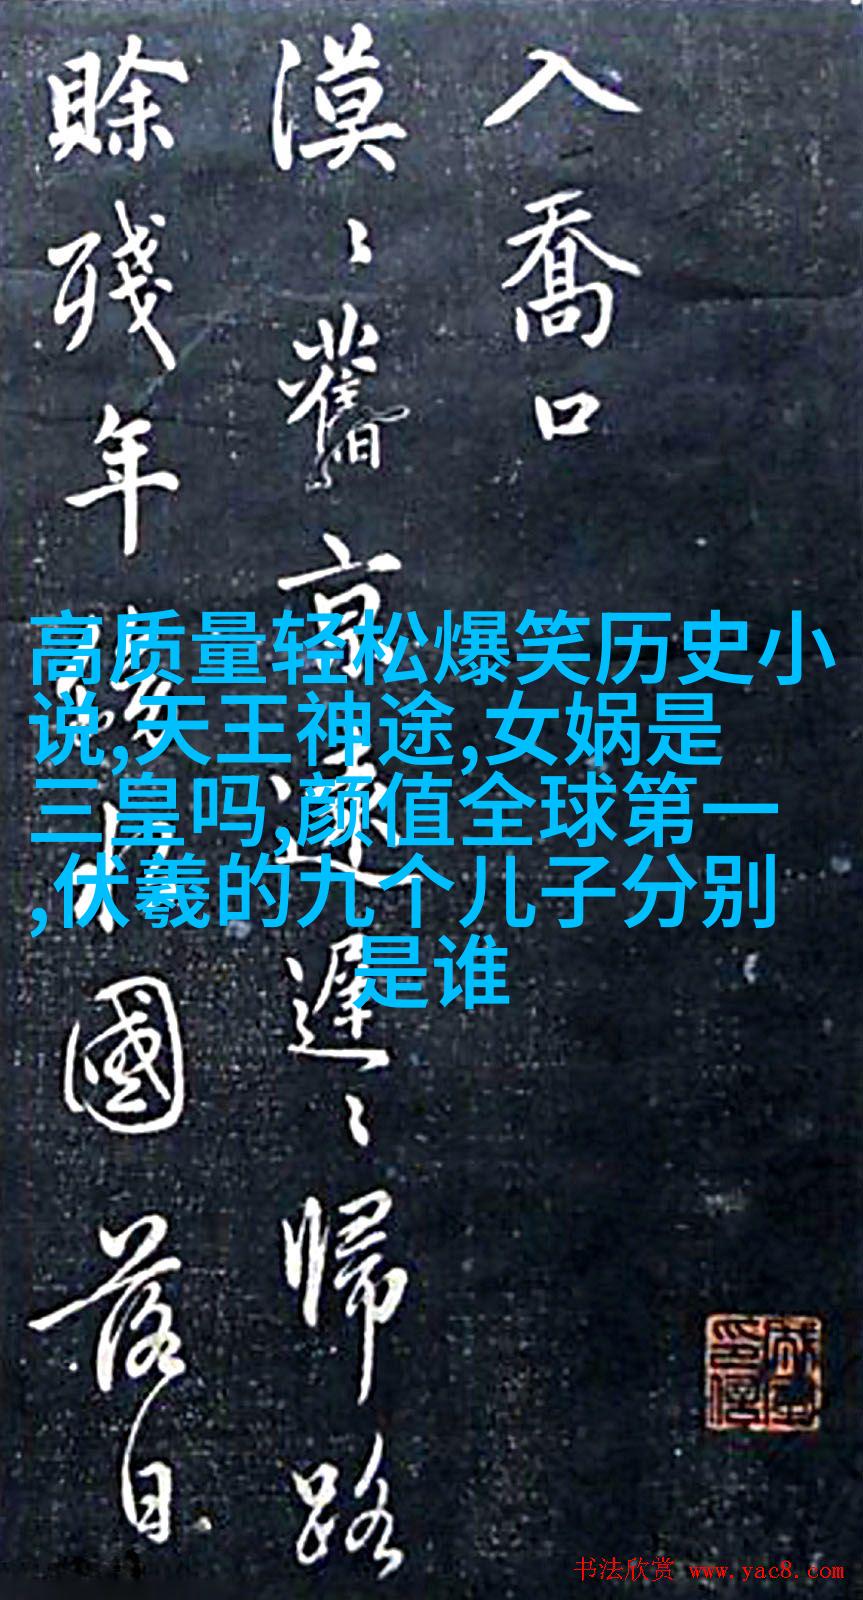 入喬口
漠々舊京遠遲々歸路
賒殘年傍水國落日
高质量轻松爆笑历史小
说,天王神途,女娲是
三皇吗,颜值全球第一
,伏羲的九个儿子分别
是谁
书法欣赏 www.yac8.com